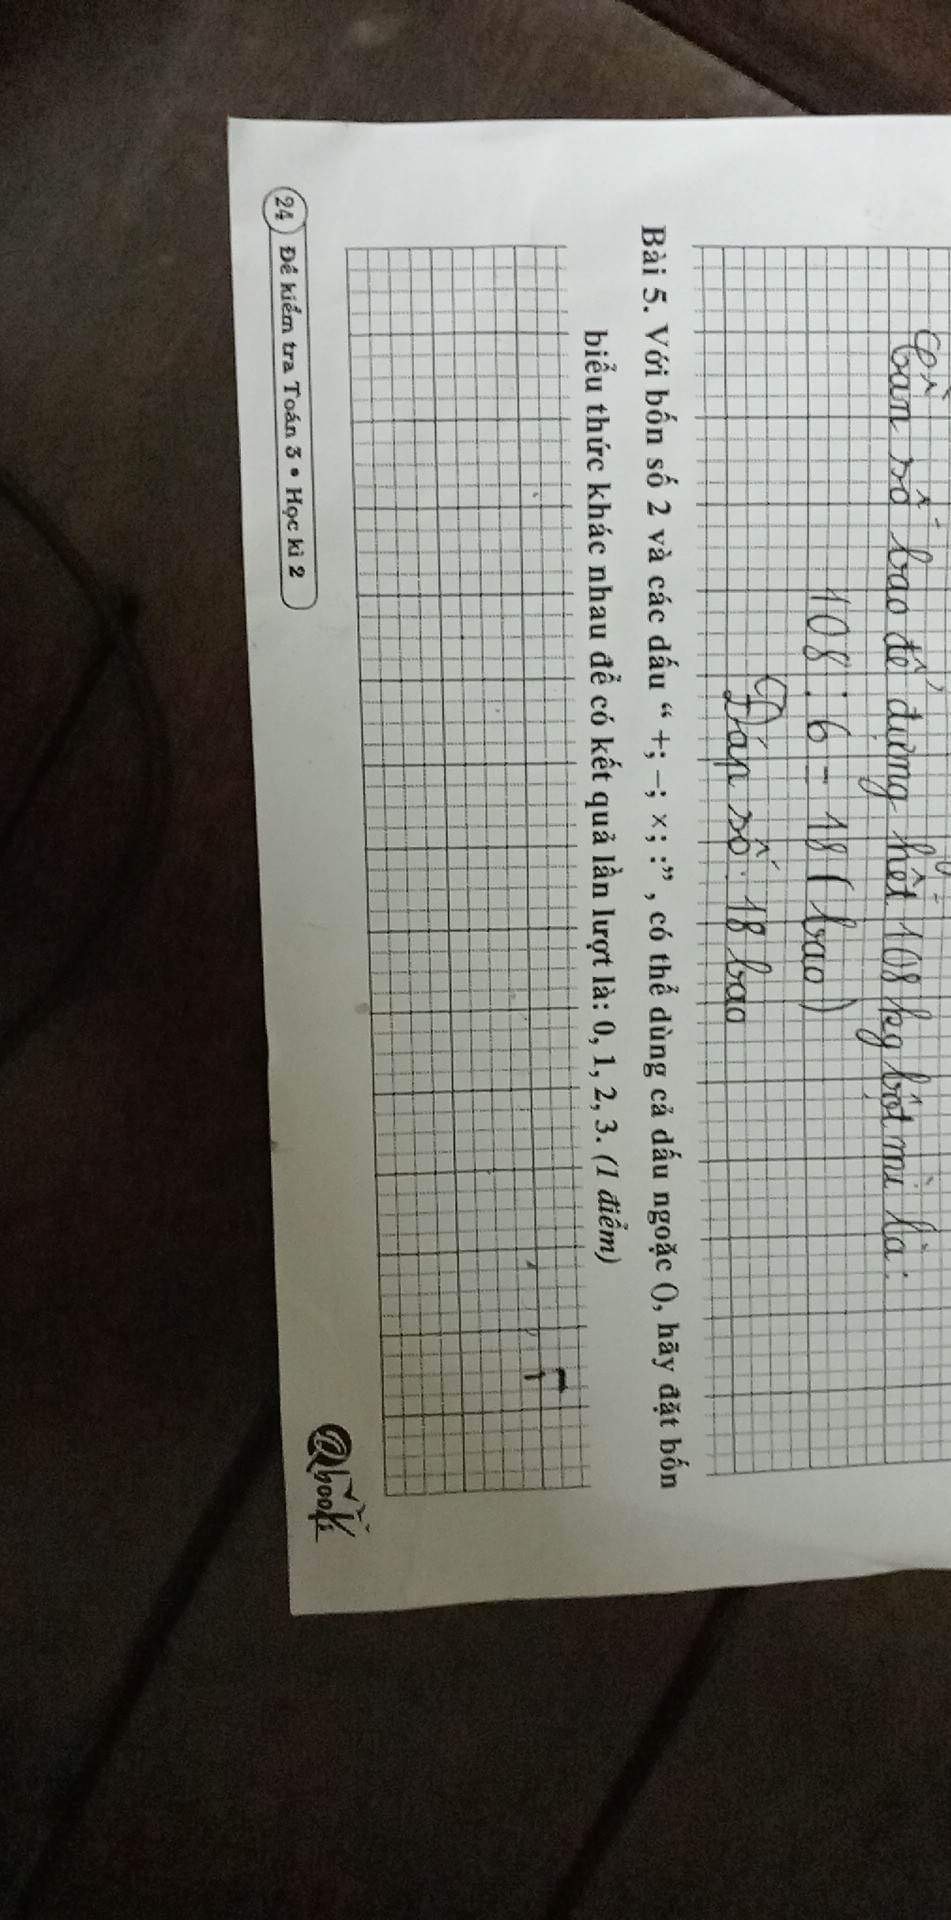 Cần số bao để đựng hết 108 kg bột mì là:
108 : 6 = 18 (bao)
Đáp số: 18 bao
Bài 5. Với bốn số 2 và các dấu “ +; –; ×; :” , có thể dùng cả dấu ngoặc (), hãy đặt bốn
biểu thức khác nhau để có kết quả lần lượt là: 0, 1, 2, 3. (1 điểm)
24 Đề kiểm tra Toán 3 • Học kì 2
Qbooks